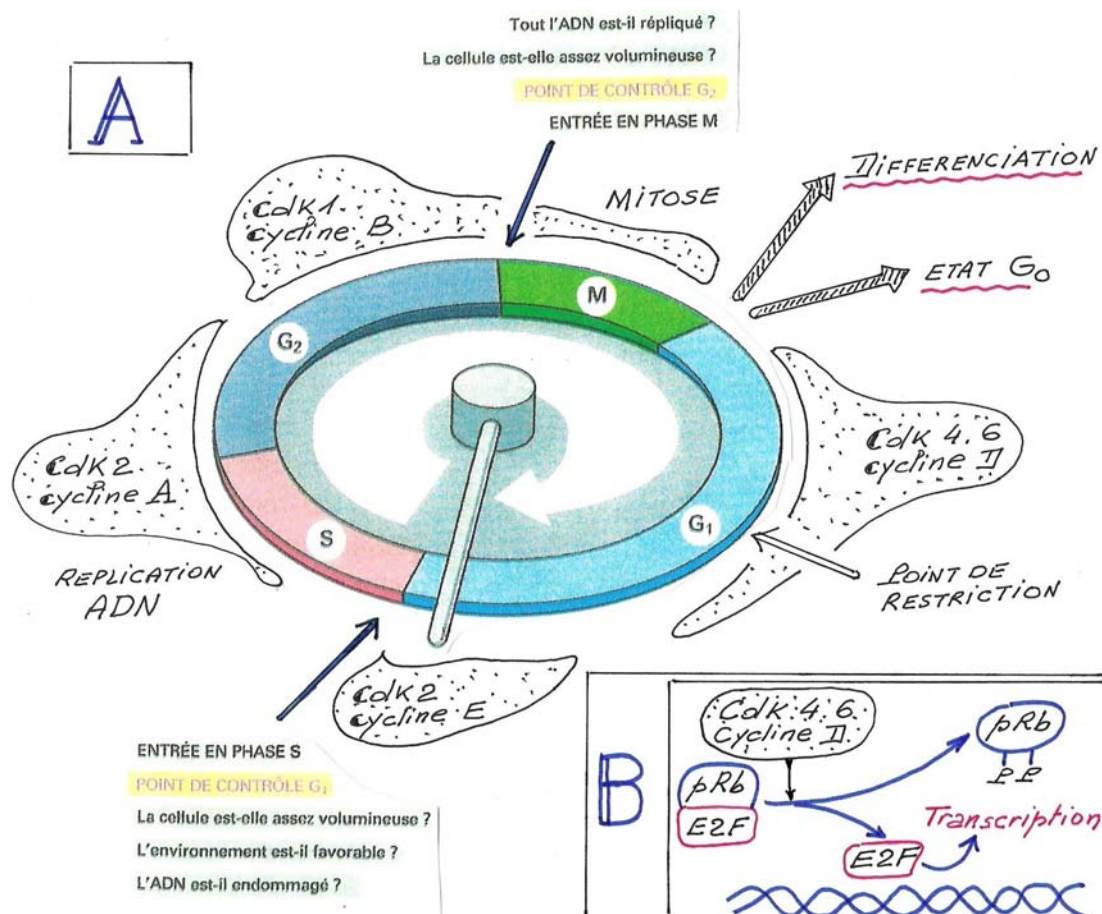 Tout l'ADN est-il répliqué ?
La cellule est-elle assez volumineuse ?
POINT DE CONTRÔLE G₂
ENTRÉE EN PHASE M
A
DIFFERENCIATION
ETAT G₀
MITOSE
Cdk1
cycline B
M
G₂
Cdk2
cycline A
Cdk 4.6
cycline D
G₁
S
REPLICATION
ADN
POINT DE
RESTRICTION
Cdk2
cycline E
ENTRÉE EN PHASE S
POINT DE CONTRÔLE G₁
La cellule est-elle assez volumineuse ?
L'environnement est-il favorable ?
L'ADN est-il endommagé ?
B
Cdk 4.6
Cycline D
pRb
E2F
pRb
P P
E2F
Transcription